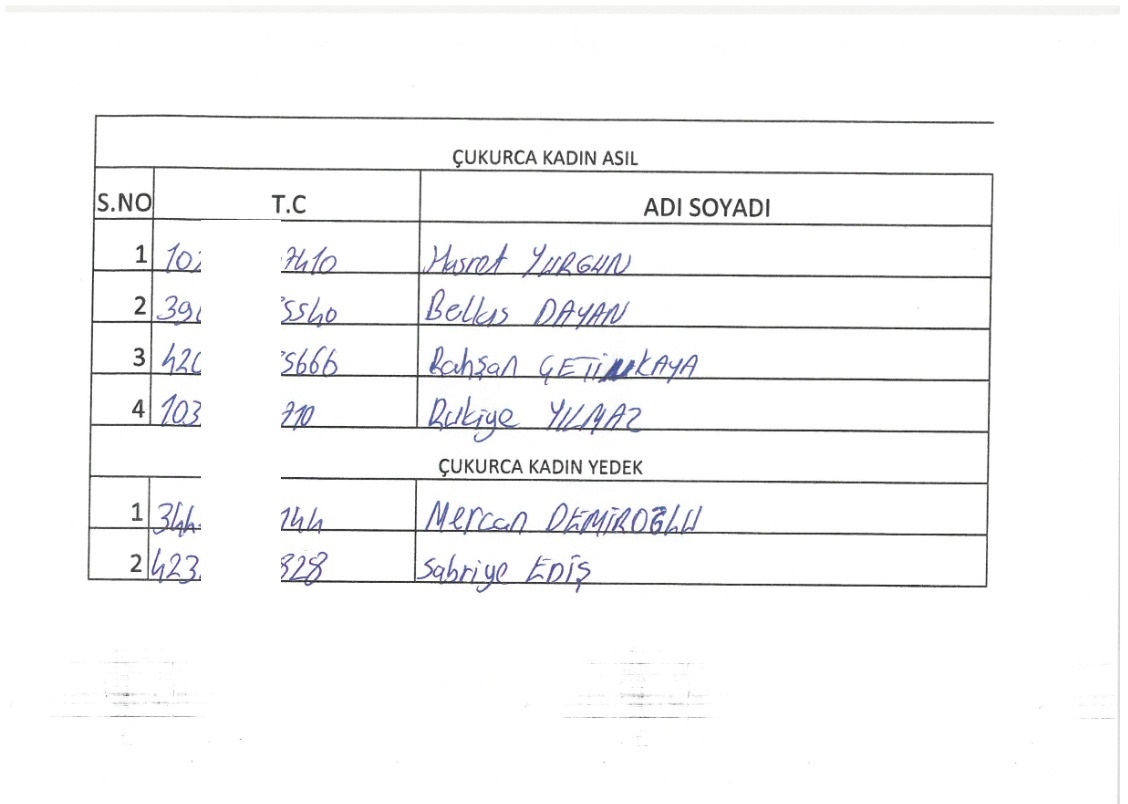 ÇUKURCA KADIN ASIL
S.NO T.C ADI SOYADI
1 102 7410 Hasret YURGUN
2 39 5540 Belkıs DAYAN
3 420 5666 Rahşan ÇETİNKAYA
4 103 710 Rukiye YILMAZ
ÇUKURCA KADIN YEDEK
1 344 244 Mercan DEMİROĞLU
2 423 828 Sabriye EDİŞ